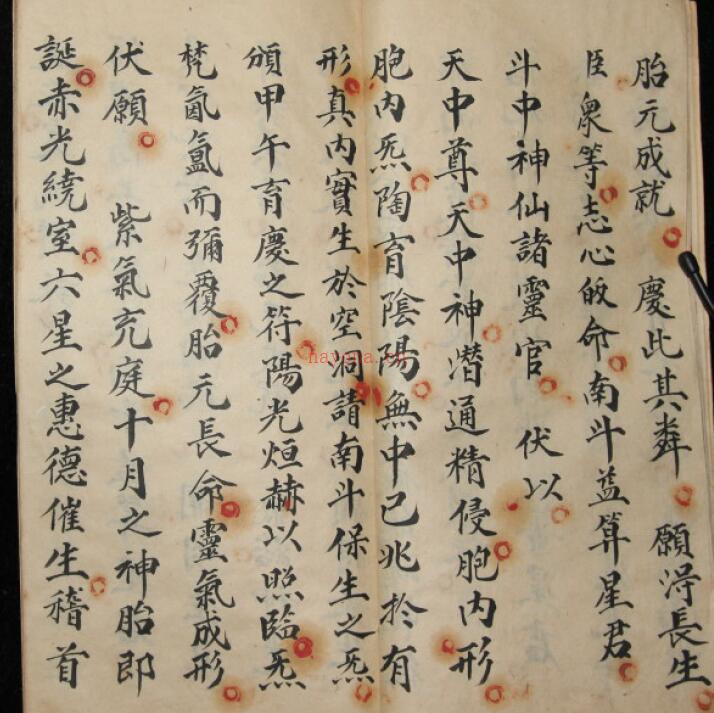 胎元成就　慶此其粦　願淂長生
臣衆等志心皈命南斗益算星君
斗中神仙諸靈官　伏以
天中尊天中神潛通精侵胞內形
胞內炁陶育陰陽無中已兆扵有
形真內實生於空洞請南斗保生之炁
頒甲午育慶之符陽光烜赫以照臨炁
梵氤氲而彌覆胎元長命靈氣成形
伏願　紫氣充庭十月之神胎即
誕赤光繞室六星之惠德催生稽首